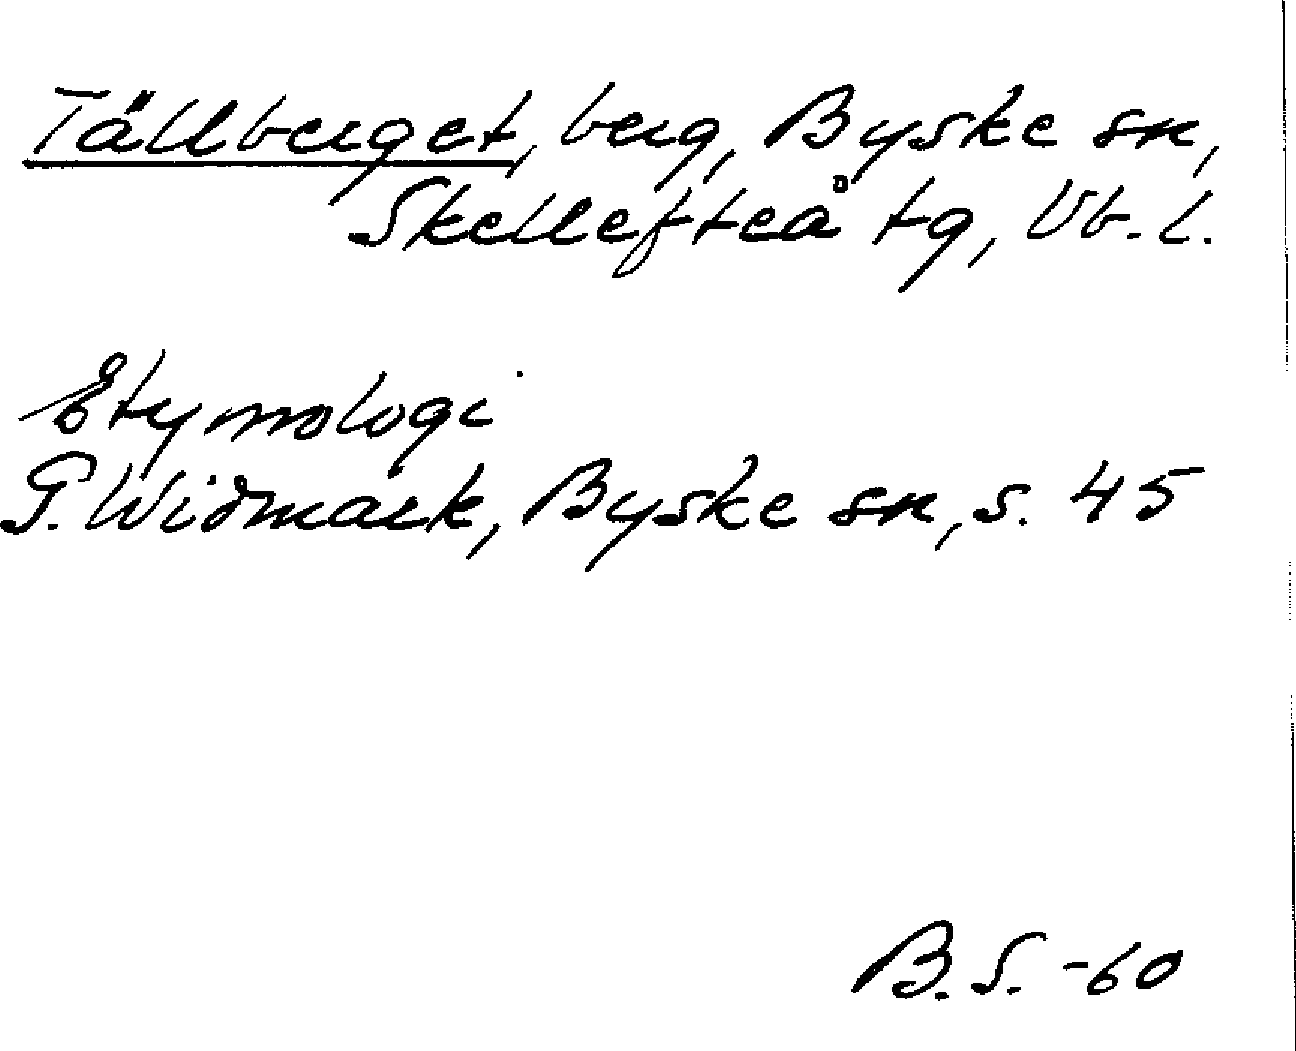 Tällberget, berg, Byske sn,
Skellefteå tg, Vb. l.
Etymologi
G. Widmark, Byske sn, s. 45
B. S. -60